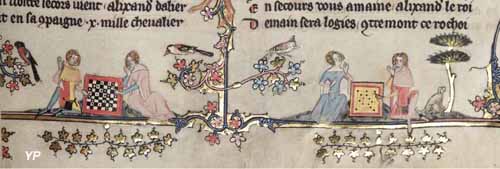 secors uient · alixand daher
t en sa opaigne · x · mille cheualier
E n secours uous amaine · alixand le roi
D emain sera logies · ce rochoi
YP